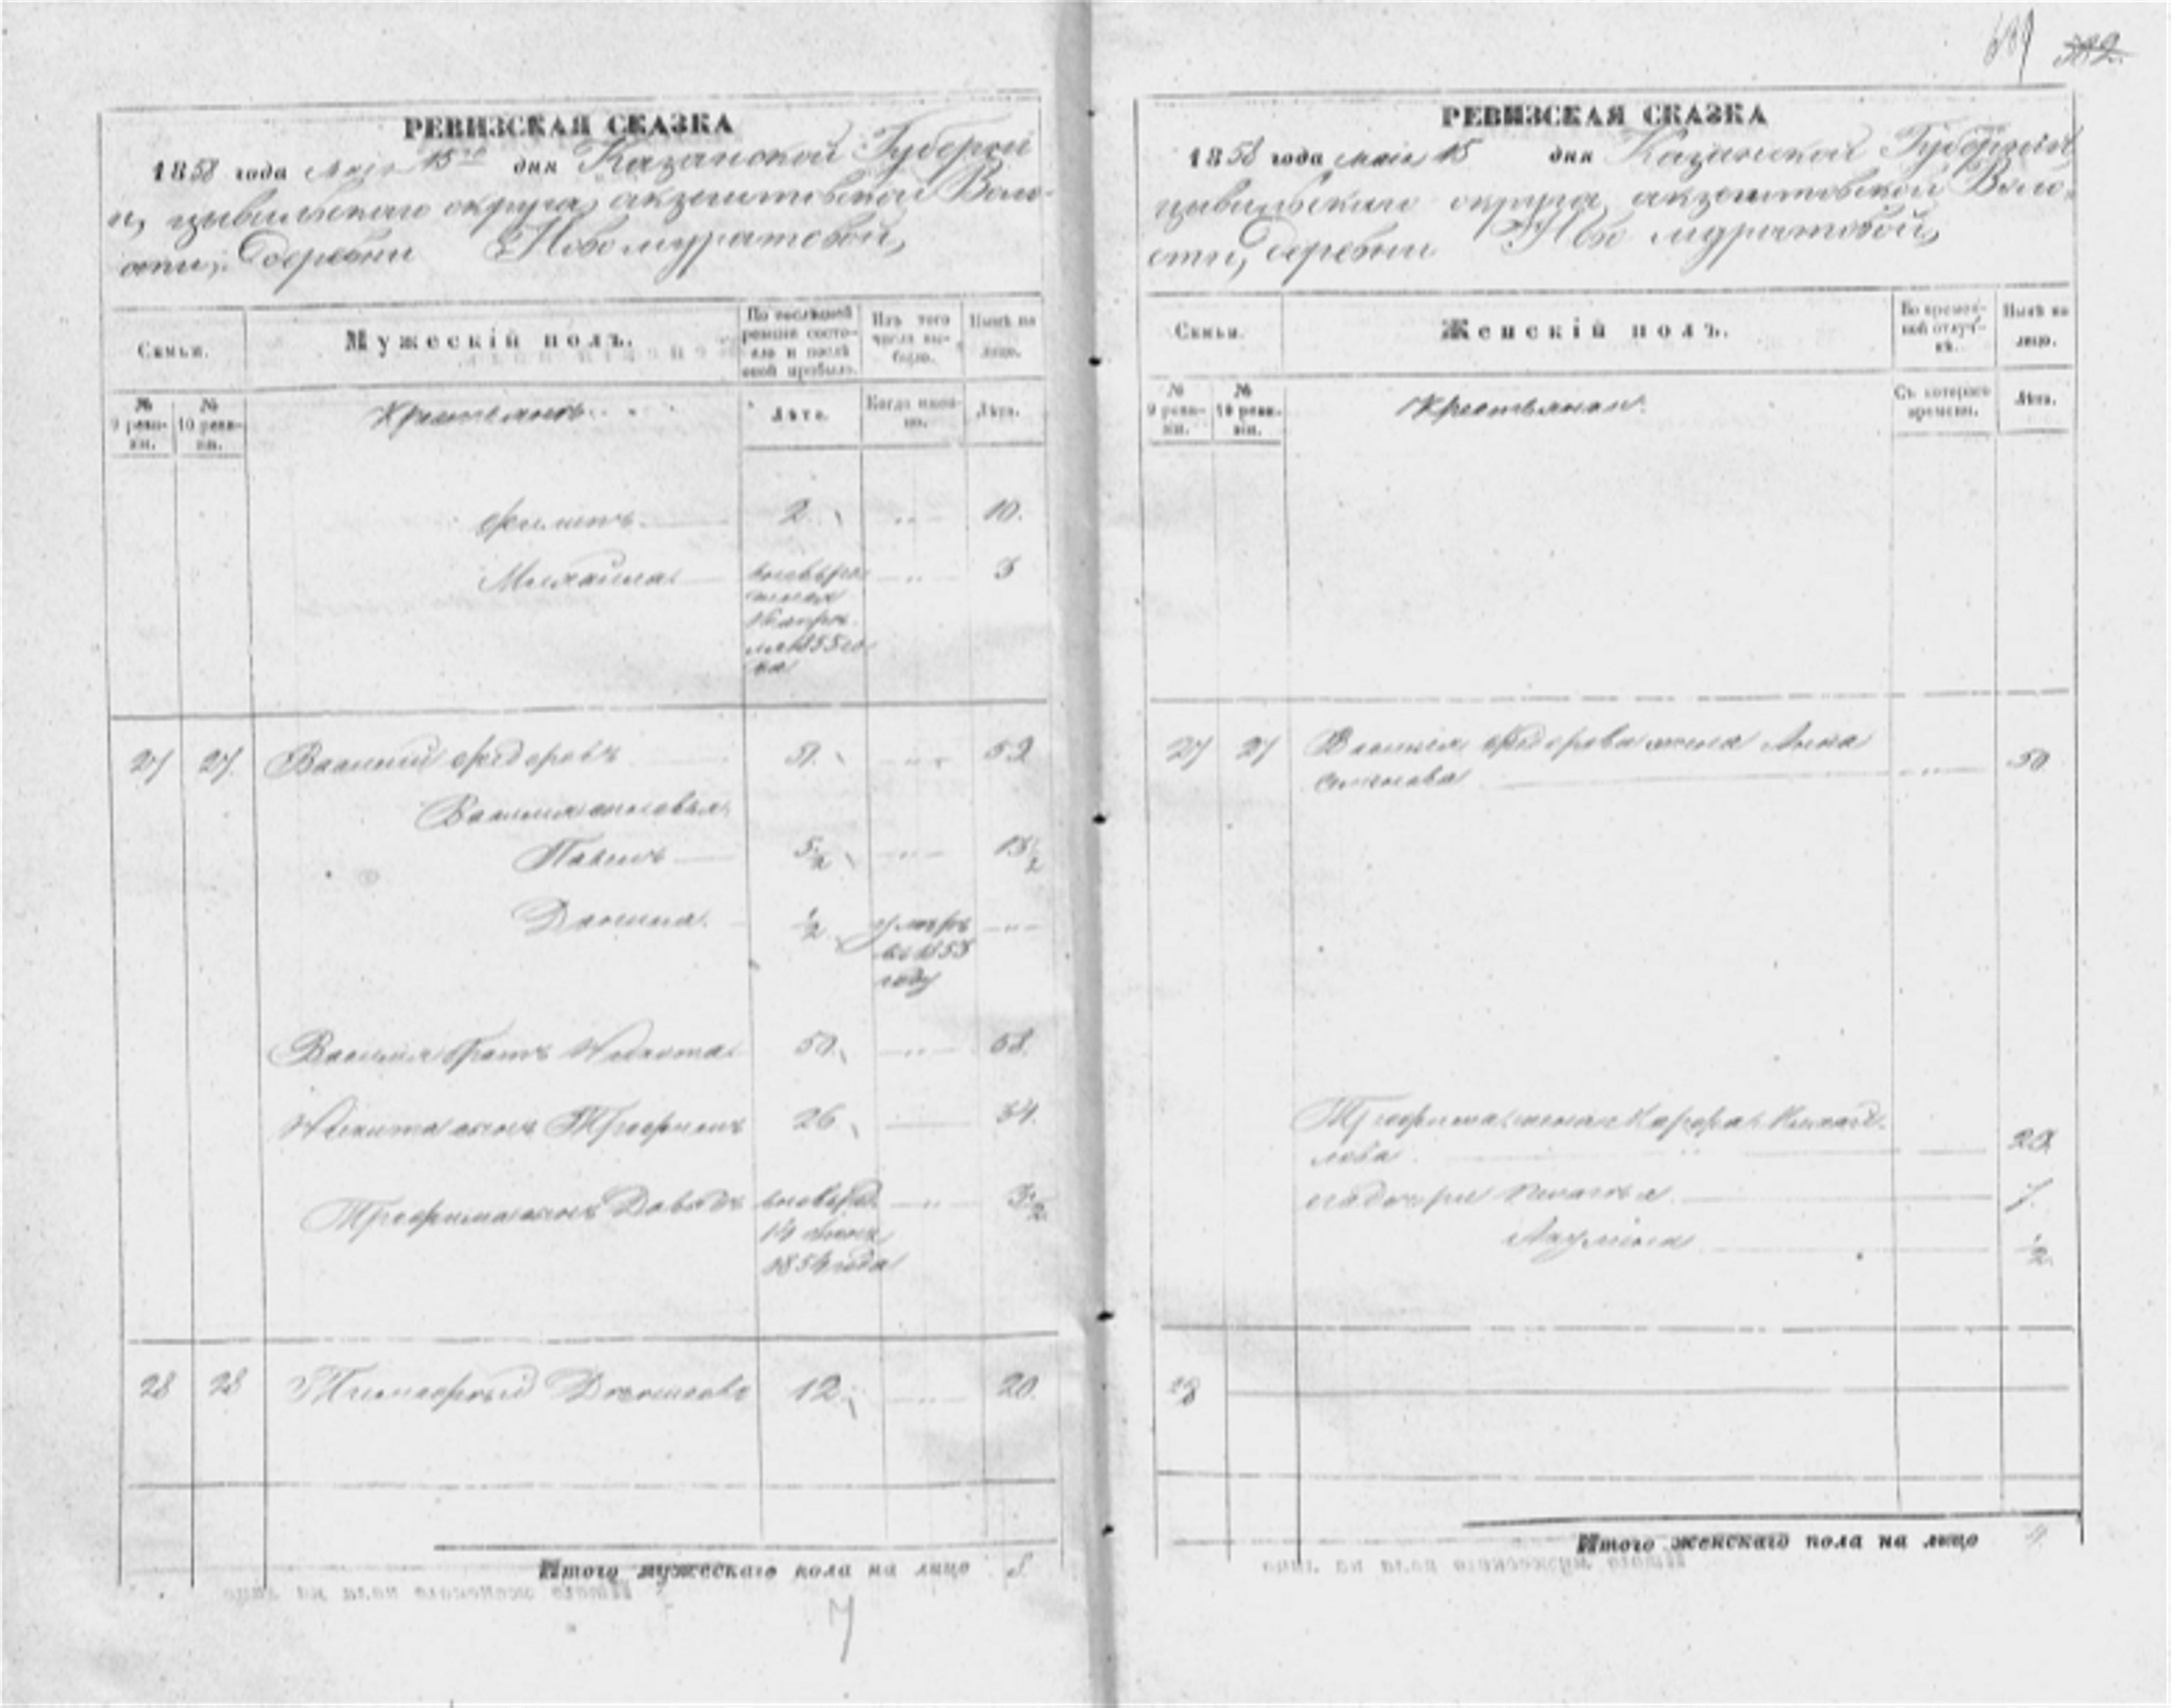 689 382
РЕВИЗСКАЯ СКАЗКА
1858 года мая 15го дня Казанской Губерні
и, цывильскаго округа, акзегитовской Воло-
сти, Деревни Новомуратовой,
Семьи.
Мужескій полъ.
По послѣдней ревизіи состо-
яло и послѣ оной прибыло.
Изъ того числа вы-
было.
Нынѣ на лицо.
№ 9 реви-
зіи.
№ 10 реви-
зіи.
Крестьянъ
Лѣта.
Когда имен-
но.
Лѣта.
Филипъ 2 10.
Михайла вновьро- 3
жденъ
16 апре-
ля 1855 го-
да
27 27 Василий Федоровъ 51. 59
Василия сыновья,
Павелъ 5½ 13½
Данила ½ умеръ
въ 1853
году
Василия братъ Никита 50. 58.
Никита сынъ Трофимъ 26 34.
Трофима сынъ Давыдъ вновьрод. 3½
14
1854 года
28 28 Тимофей 12. 20.
Итого мужескаго пола на лицо 8
7
РЕВИЗСКАЯ СКАЗКА
1858 года мая 15 дня Казанской Губерніи,
цывильскаго округа, акзегитовской Воло-
сти, Деревни Ново муратовой,
Семьи.
Женскій полъ.
Во времен-
ной отлуч-
кѣ.
Нынѣ на лицо.
№ 9 реви-
зіи.
№ 10 реви-
зіи.
Крестьянки.
Съ котораго времени.
Лѣта.
27 27 Василия Федорова жена Анна
50.
Трофима жена
29.
его дочери Пелагея 7.
Акулина ½
28
Итого женскаго пола на лицо 4